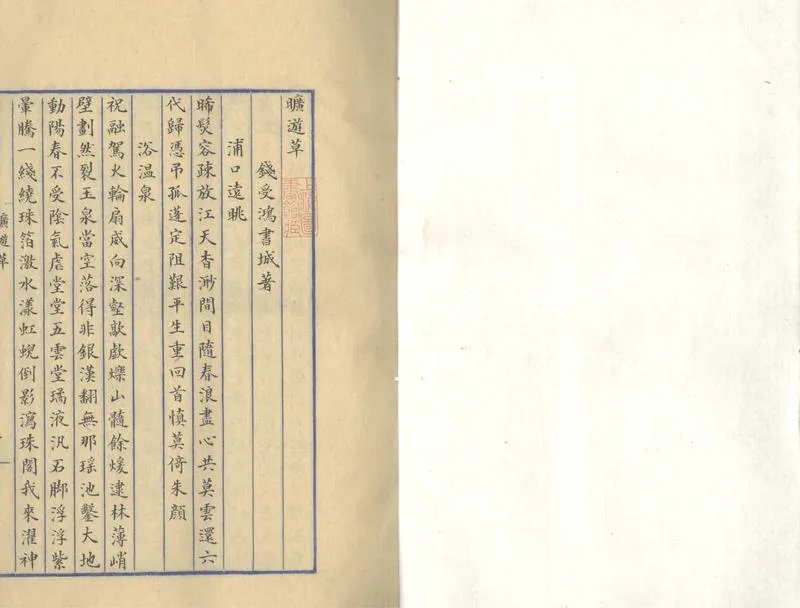 曠遊草
錢受鴻書城著
浦口遠眺
晞髮容疎放江天杳渺間目隨春浪盡心共莫雲還六
代歸憑吊孤蓬定阻艱平生重回首慎莫倚朱顔
浴温泉
祝融駕火輪扇威向深壑歊歔爍山髓餘煖逮林薄峭
壁劃然裂玉泉當空落得非銀漢翻無那瑶池鑿大地
動陽春不受陰氣虐堂堂五雲堂璚液汎石脚浮浮紫
暈騰一綫繞珠箔激水漾虹蜺倒影瀉珠閣我來濯神
曠遊草